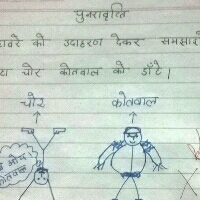 पुनरावृत्ति
को उदाहरण देकर समझाओ
चोर कोतवाल को डाँटे।
चोर
कोतवाल
कोतवाल